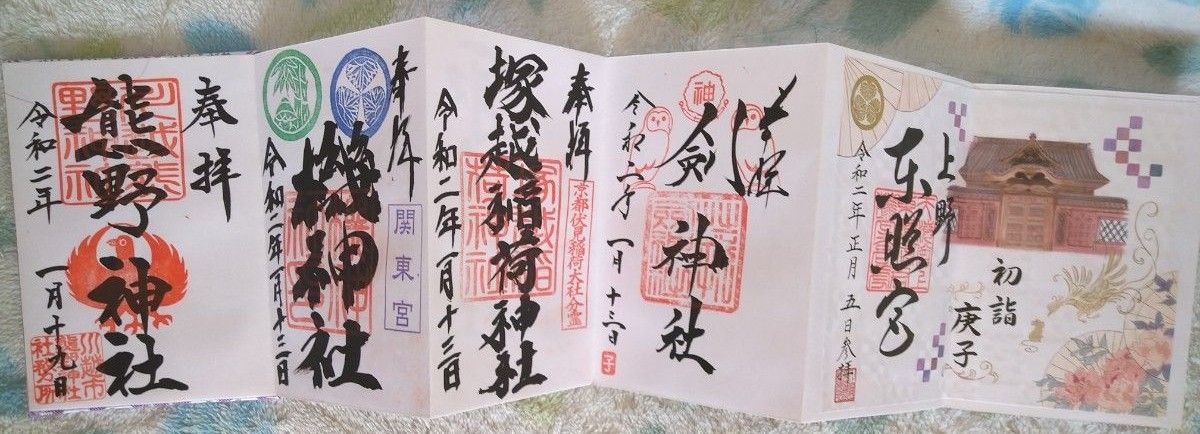 初詣
庚子
上野
東照宮
令和二年正月 五日参拝
神
神社
令和二年 一月十三日
子
奉拝
京都伏見稲荷大社分霊
塚越稲荷神社
令和二年一月十三日
奉拝
関東宮
機神社
令和二年一月十三日
奉拝
熊野神社
令和二年 一月十九日
川越市
熊野神社
社務所